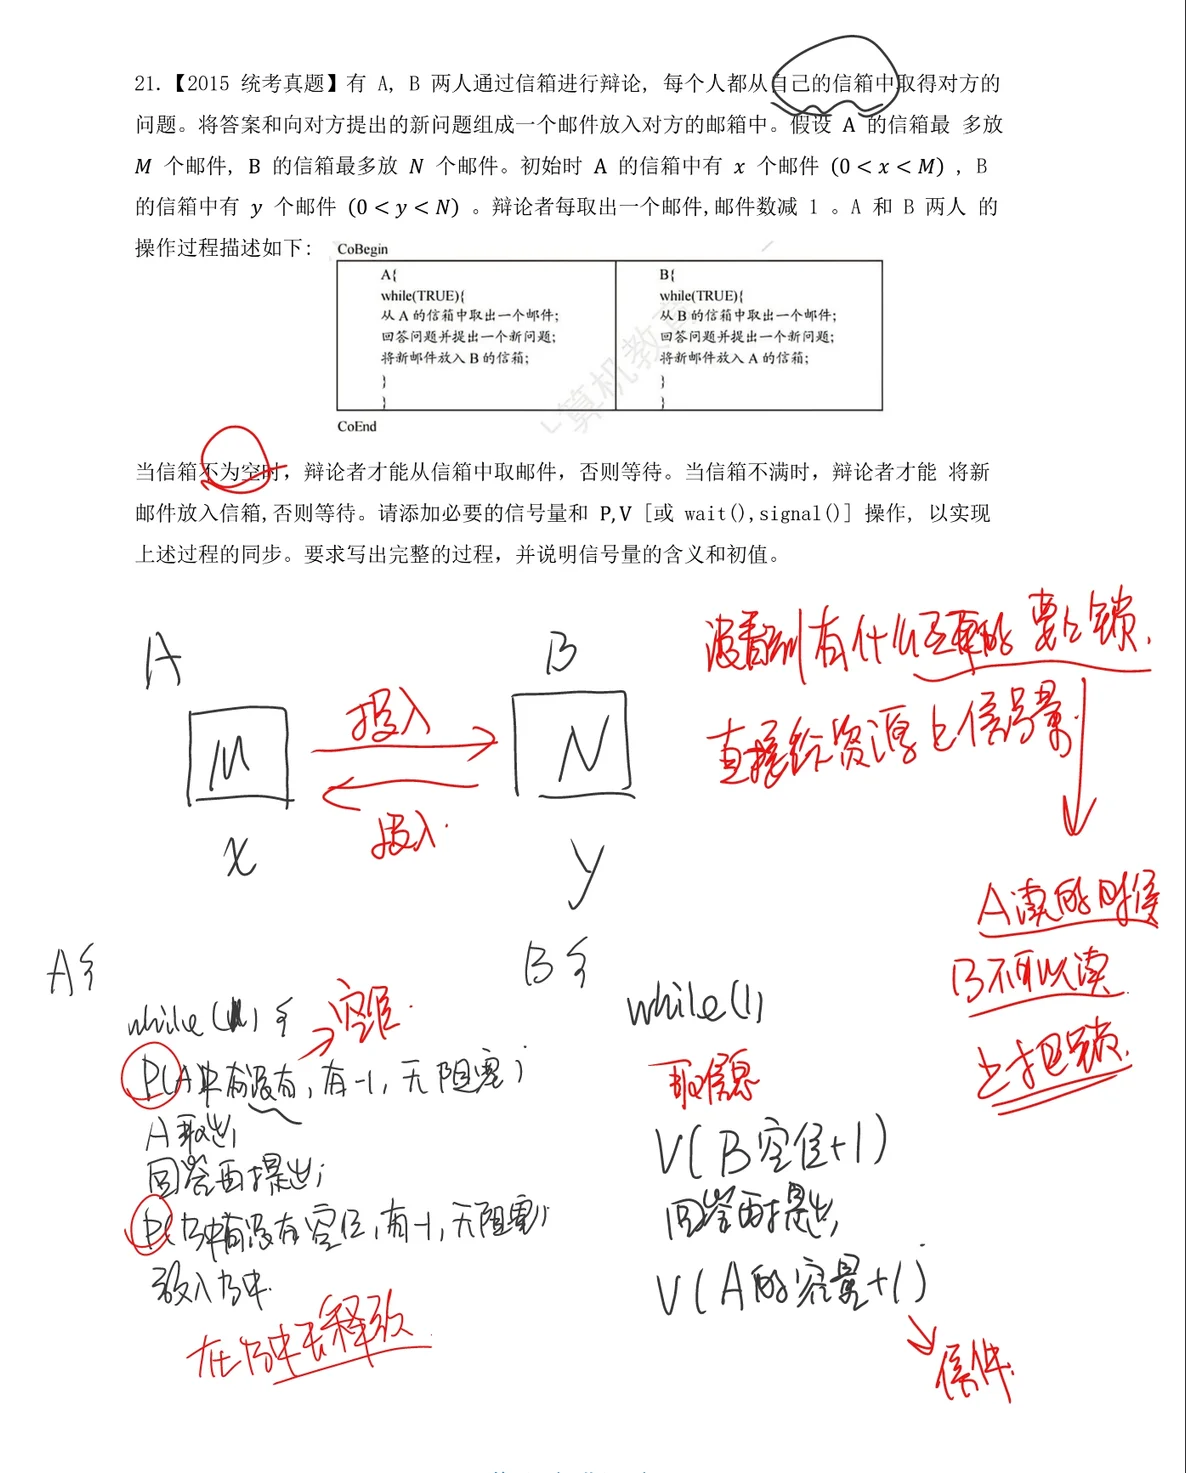 21.【2015 统考真题】有 A, B 两人通过信箱进行辩论, 每个人都从自己的信箱中取得对方的
问题。将答案和向对方提出的新问题组成一个邮件放入对方的邮箱中。假设 A 的信箱最 多放
M 个邮件, B 的信箱最多放 N 个邮件。初始时 A 的信箱中有 x 个邮件 (0 < x < M) , B
的信箱中有 y 个邮件 (0 < y < N) 。辩论者每取出一个邮件,邮件数减 1 。A 和 B 两人 的
操作过程描述如下:
CoBegin
A{
while(TRUE){
从 A 的信箱中取出一个邮件;
回答问题并提出一个新问题;
将新邮件放入 B 的信箱;
}
}
B{
while(TRUE){
从 B 的信箱中取出一个邮件;
回答问题并提出一个新问题;
将新邮件放入 A 的信箱;
}
}
CoEnd
算机教育
当信箱不为空时, 辩论者才能从信箱中取邮件, 否则等待。当信箱不满时, 辩论者才能 将新
邮件放入信箱,否则等待。请添加必要的信号量和 P,V [或 wait(),signal()] 操作, 以实现
上述过程的同步。要求写出完整的过程, 并说明信号量的含义和初值。
A
B
没看到有什么 要上锁.
直接给资源上信号量
M
投入
N
投入.
x
y
A读的时候
B不可以读
上把锁.
A{
while(1) {
空位.
P(A中有没有, 有-1, 无阻塞;
A取出;
回答再提出;
P(B中有没有空位, 有-1, 无阻塞);
放入B中.
在B中去释放.
B{
while(1)
取信息
V(B空位+1)
回答再提出;
V(A的容量+1)
信件.